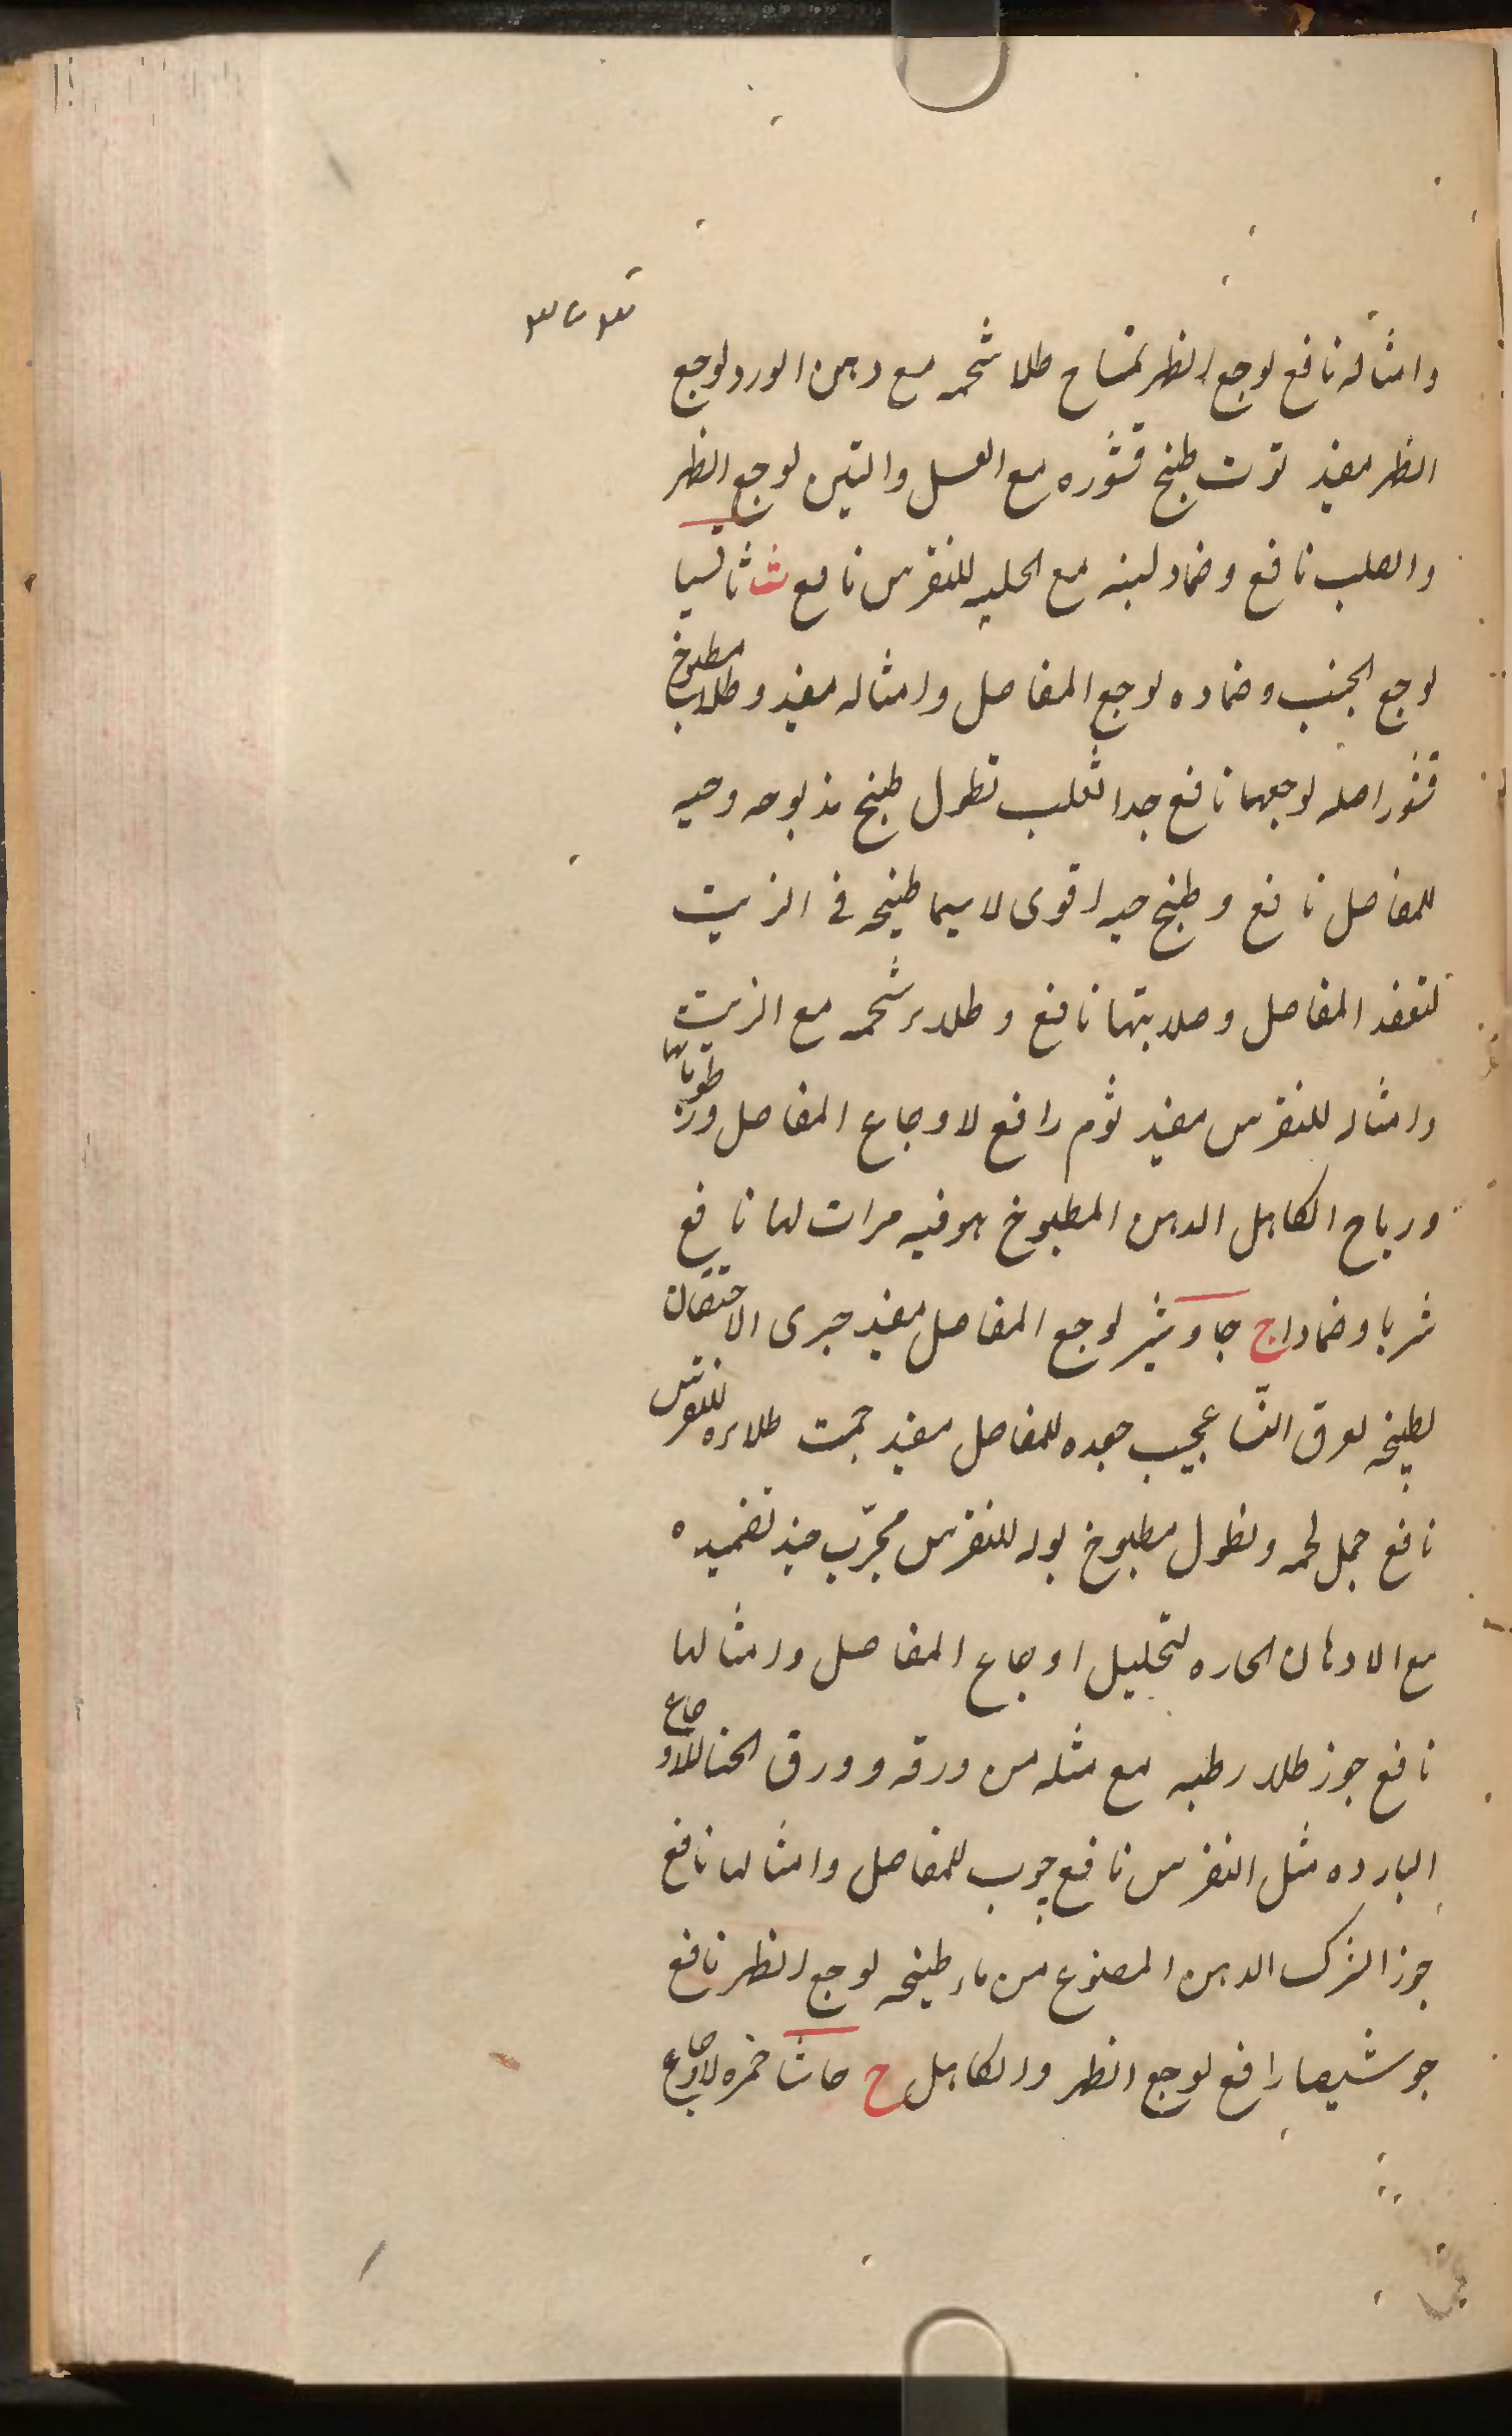 ۳۷۳
وامثاله نافع لوجع الظهر تمساح طلا شحمه مع دهن الورد لوجع
الظهر مفيد توت طبخ قشوره مع العسل والتين لوجع الظهر
والصلب نافع وضماد لبنه مع الحلبه للنقرس نافع ث ثافسيا
لوجع الجنب وضماده لوجع المفاصل وامثاله مفيد وطلاء مطبوخ
قشور اصله لوجعهما نافع جدا ثعلب نطول طبخ مذبوحه وحيه
للمفاصل نافع وطبخ حيه اقوى لاسيما طبخه فى الزيت
لتعقد المفاصل وصلابتها نافع وطلاء شحمه مع الزيت
وامثاله للنقرس مفيد ثوم رافع لاوجاع المفاصل ورطوباتها
ورياح الكاهل الدهن المطبوخ هو فيه مرات لها نافع
شربا وضمادا ج جاوشير لوجع المفاصل مفيد جرى الاحتقان
بطبخه لعرق النسا عجيب جعده للمفاصل مفيد جمت طلاءه للنقرس
نافع جمل لحمه ونطول مطبوخ بوله للنقرس مجرّب جند تضميده
مع الادهان الحاره لتحليل اوجاع المفاصل وامثالها
نافع جوز طلاء رطبه مع مثله من ورقه وورق الحنا للاوجاع
البارده مثل النقرس نافع جرب للمفاصل وامثالها نافع
جوز الشرك الدهن المصنوع من ماء طبخه لوجع الظهر نافع
جوشيصا رافع لوجع الظهر والكاهل ح حاشا خمره لاوجاع